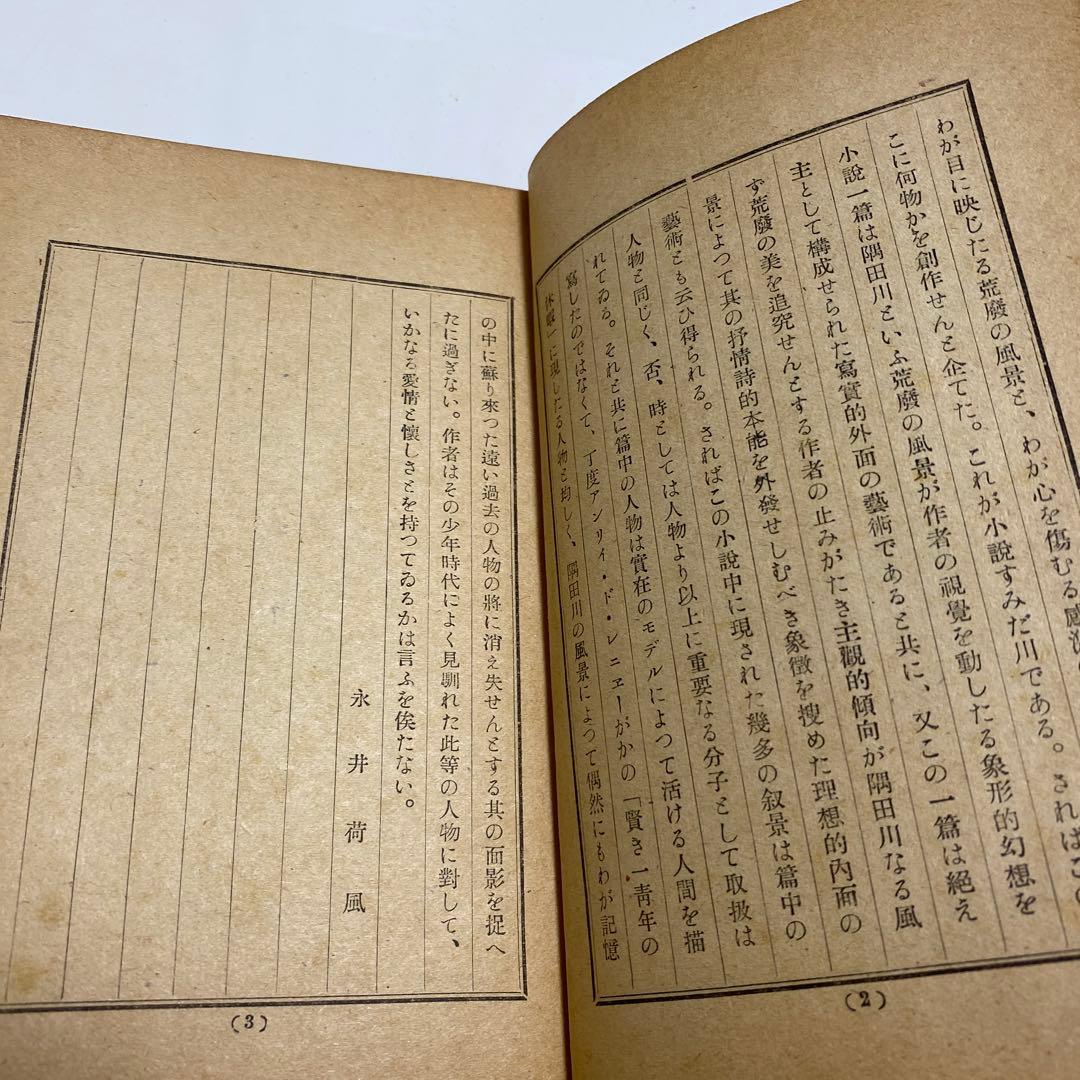 わが目に映じたる荒廢の風景と、わが心を傷むる感激
こに何物かを創作せんと企てた。これが小說すみだ川である。さればこの
小說一篇は隅田川といふ荒廢の風景が作者の視覺を動したる象形的幻想を
主として構成せられた寫實的外面の藝術であると共に、又この一篇は絕え
ず荒廢の美を追究せんとする作者の止みがたき主觀的傾向が隅田川なる風
景によつて其の抒情詩的本能を外發せしむべき象徵を搜めた理想的內面の
藝術とも云ひ得られる。さればこの小說中に現された幾多の叙景は篇中の
人物と同じく、否、時としては人物より以上に重要なる分子として取扱は
れてゐる。それと共に篇中の人物は實在のモデルによつて活ける人間を描
寫したのではなくて、丁度アンリイ・ド・レニヱーがかの「賢き一靑年の
休暇」に現したる人物と均しく、隅田川の風景によつて偶然にもわが記憶
(2)
の中に蘇り來つた遠い過去の人物の將に消え失せんとする其の面影を捉へ
たに過ぎない。作者はその少年時代によく見馴れた此等の人物に對して、
いかなる愛情と懷しさとを持つてゐるかは言ふを俟たない。
永井荷風
(3)